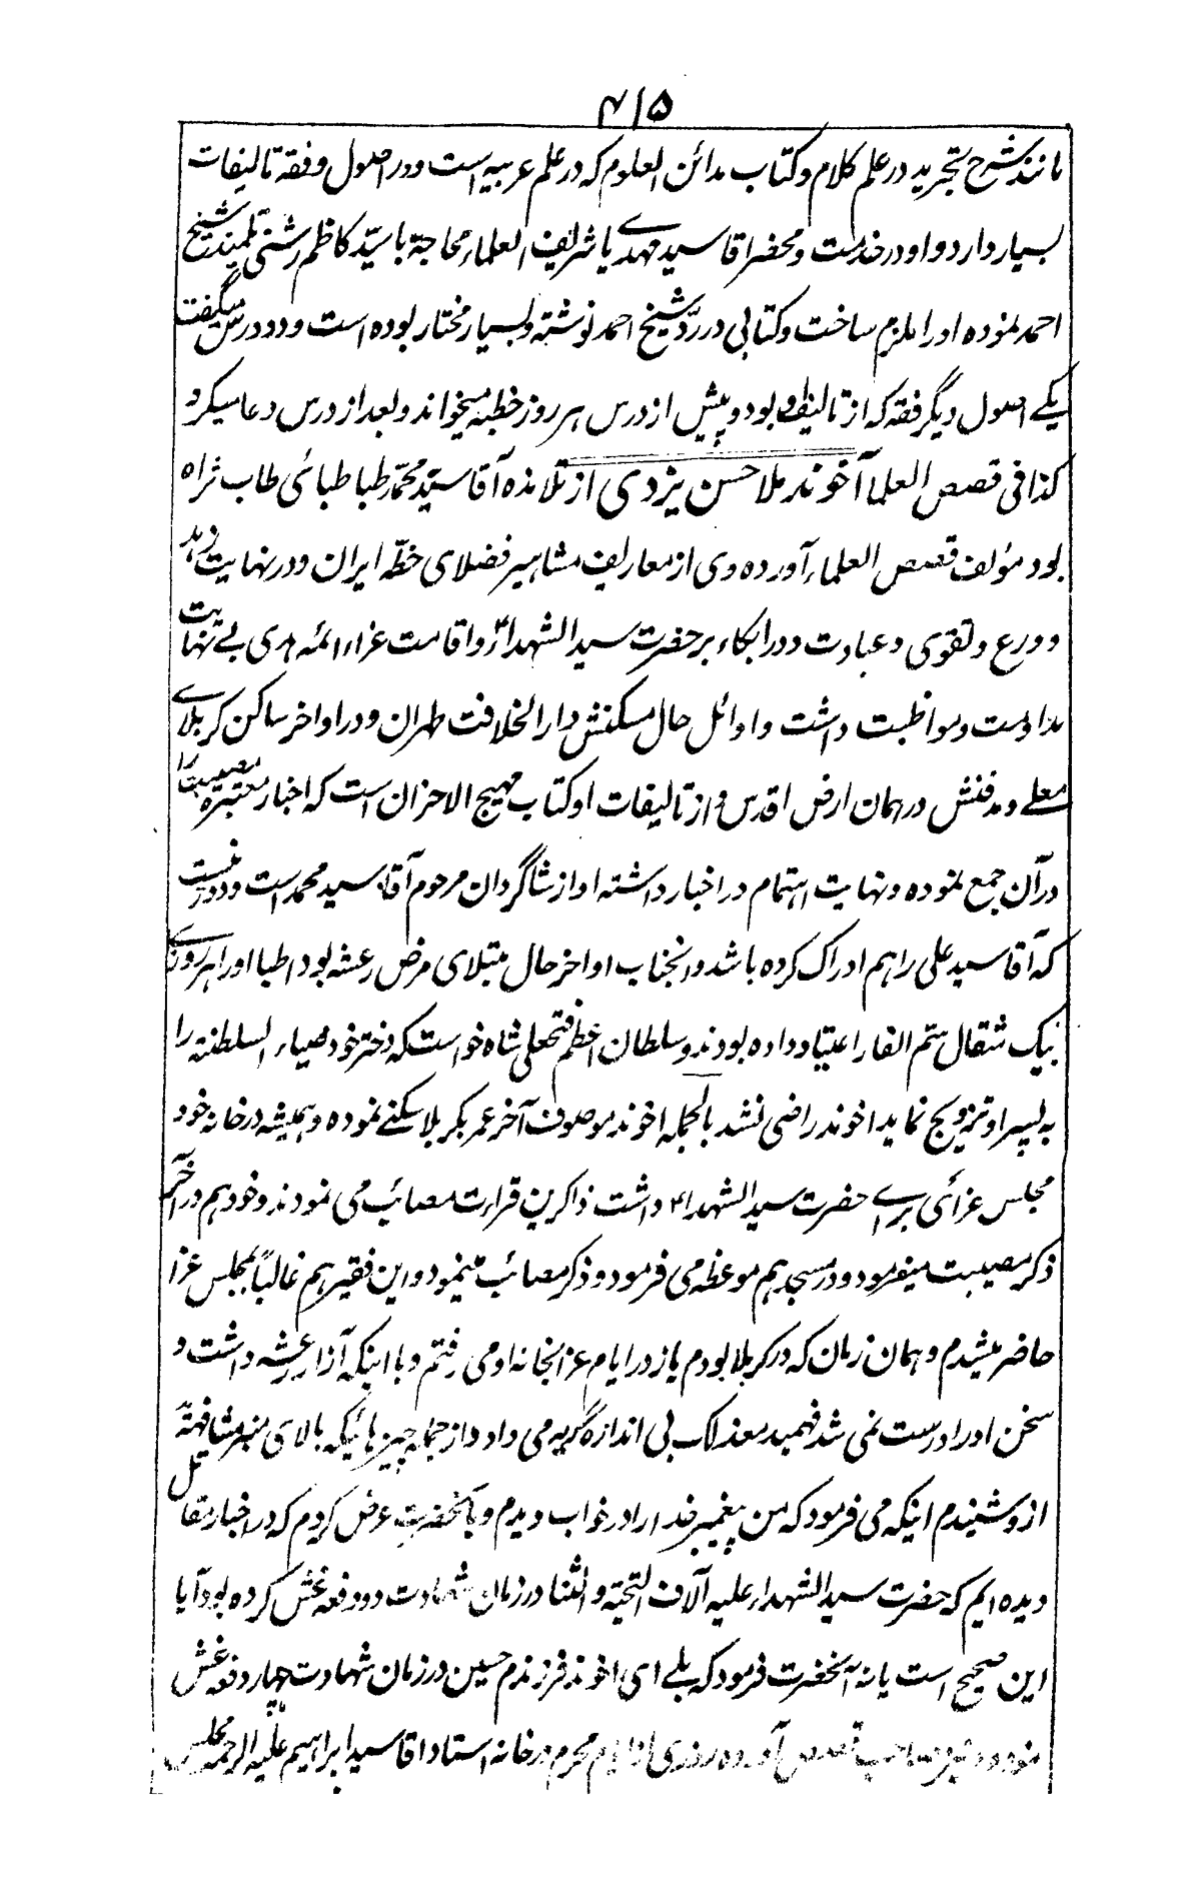 ۴۱۵
مانند شرح تجرید در علم کلام و کتاب مدائن العلوم که در علم عربیه است و در اصول و فقه تالیفات
بسیار دارد و او در خدمت و محضر اقا سید مهدی یا شریف العلماء محاجّه با سیّد کاظم رشتی تلمیذ شیخ
احمد نموده او را ملزم ساخت و کتابی در ردّ شیخ احمد نوشته و بسیار مختار بوده است و دو درس میگفت
یکے اصول دیگر فقه که از تالیف او بود و پیش از درس هر روز خطبه میخواند و بعد از درس دعا میکرد
کذا فی قصص العلما آخوند ملا حسن یزدی از تلامذه آقا سیّد محمّد طباطبائی طاب ثراه
بود مؤلف قصص العلماء آورده وی از معاریف مشاهیر فضلای خطّه ایران و در نهایت زهد
و ورع و تقوی و عبادت و در ابکاء بر حضرت سید الشهداءؑ و اقامت عزاء ائمه هدی بے نهایت
مداومت و مواظبت داشت و اوائل حال مسکنش دار الخلافت طهران و در اواخر ساکن کربلاے
معلے و مدفنش در همان ارض اقدس و از تالیفات او کتاب مهیج الاحزان است که اخبار معتبره مصیبت را
در آن جمع نموده و نهایت اهتمام در اخبار داشته او از شاگردان مرحوم آقا سید محمد است و دور نیست
که آقا سید علی را هم ادراک کرده باشد و انجناب اواخر حال مبتلای مرض رعشه بود اطبا او را هر روزے
بیک مثقال سم الفار اعتیاد داده بودند و سلطان اعظم فتحعلی شاه خواست که دختر خود ضیاء السلطنه را
به پسر او تزویج نماید اخوند راضی نشد بالجمله اخوند موصوف آخر عمر بکربلا سکنے نموده و همیشه در خانه خود
مجلس عزائی براے حضرت سید الشهداء۴ داشت ذاکرین قرارت مصائب می نمودند و خود هم در آخر
ذکر مصیبت میفرمود و در مسجد هم موعظه می فرمود و ذکر مصائب مینمود و این فقیر هم غالباً بمجلس عزا
حاضر میشدم و همان زمان که در کربلا بودم باز در ایام عزا بخانه او می رفتم و با اینکه آزار رعشه داشت و
سخن او را درست نمی شد فهمید معذلک بی اندازه گریه می داد و از جمله چیزهائیکه بالای منبر مشافهةً
از و شنیدم اینکه می فرمود که من پیغمبر خدا را در خواب دیدم و بآنحضرت عرض کردم که در اخبار مقاتل
دیده ایم که حضرت سید الشهداء علیه آلاف التحیة و الثنا در زمان شهادت دو دفعه غش کرده بود آیا
این صحیح است یا نه آنحضرت فرمود که بلے ای اخوند فرزندم حسین در زمان شهادت چهار دفعه غش
نمود و نیز صاحب قصص آورده روزی از ایام محرم در خانه استاد اقا سید ابراهیم علیه الرحمه مجلس